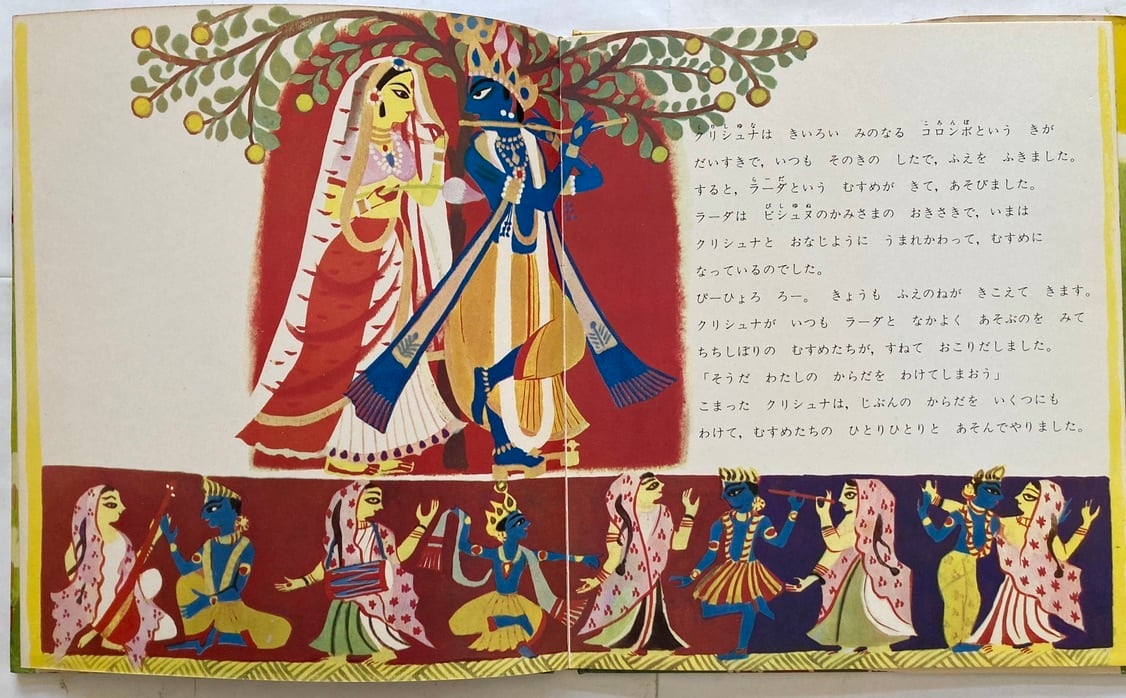 クリシュナは　きいろい　みのなる　コロンボという　きが
だいすきで，いつも　そのきの　したで，ふえを　ふきました。
すると，ラーダという　むすめが　きて，あそびました。
ラーダは　ビシュヌのかみさまの　おきさきで，いまは
クリシュナと　おなじように　うまれかわって，むすめに
なっているのでした。
ぴーひょろ　ろー。　きょうも　ふえのねが　きこえて　きます。
クリシュナが　いつも　ラーダと　なかよく　あそぶのを　みて
ちちしぼりの　むすめたちが，すねて　おこりだしました。
「そうだ　わたしの　からだを　わけてしまおう」
こまった　クリシュナは，じぶんの　からだを　いくつにも
わけて，むすめたちの　ひとりひとりと　あそんでやりました。